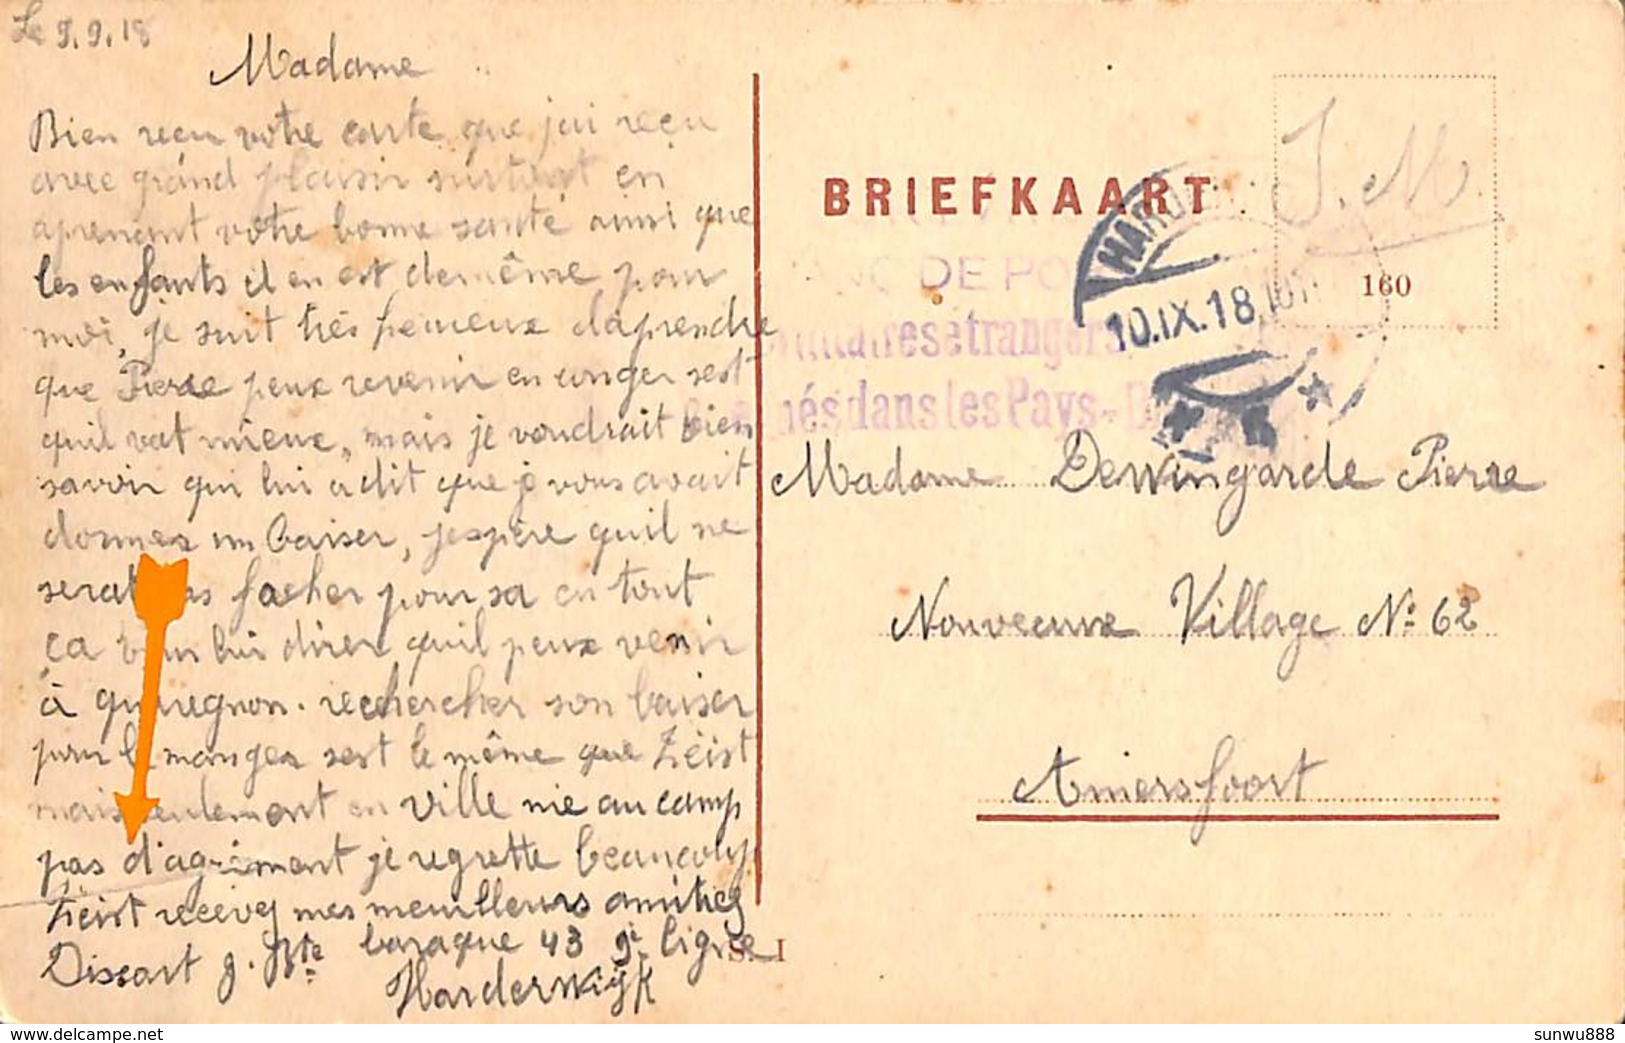 Le 9.9.18
Madame
Bien reçu votre carte que jai reçu
avec grand plaisir surtout en
aprenant votre bonne santé ainsi que
les enfants il en est demême pour
moi, je suit très heureux daprendre
que Pierre peux revenir en conger sest
quil vat mieux, mais je voudrait bien
savoir qui lui a dit que je vous avait
donner un baiser, jespère quil ne
serat pas facher pour sa en tout
ça lui direz quil peux venir
à quaregnon. rechercher son baiser
pour le manger sest le même que Zëist
mais seulement en ville nie au camp
pas d'agriment je regrette beaucoup
Zëist recevez mes meuilleurs amitiez
Dissart J. Bte baraque 43 9e ligne
Harderwijk
S. I
BRIEFKAART
J. M
160
HARD
10.IX.18
DE PO
militaires étrangers
nés dans les Pays-
Madame Dewingarde Pierre
Nouveaux Village No 62
Amersfoort
sunwu888